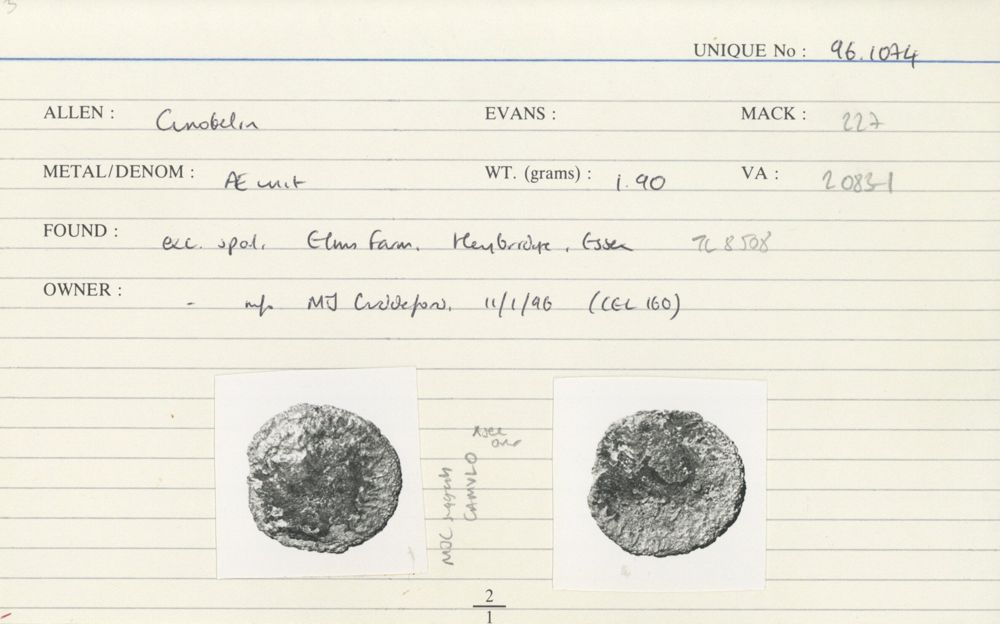 UNIQUE No : 96.1074
ALLEN : Cunobelin EVANS : MACK : 227
METAL/DENOM : Æ unit WT. (grams) : 1.90 VA : 2083-1
FOUND : exc. spoil, Elms Farm, Heybridge, Essex TL 8508
OWNER : - MJ Cuddeford, 11/1/96 (CEL 160)
MJC suggests
CAMVLO
2
1